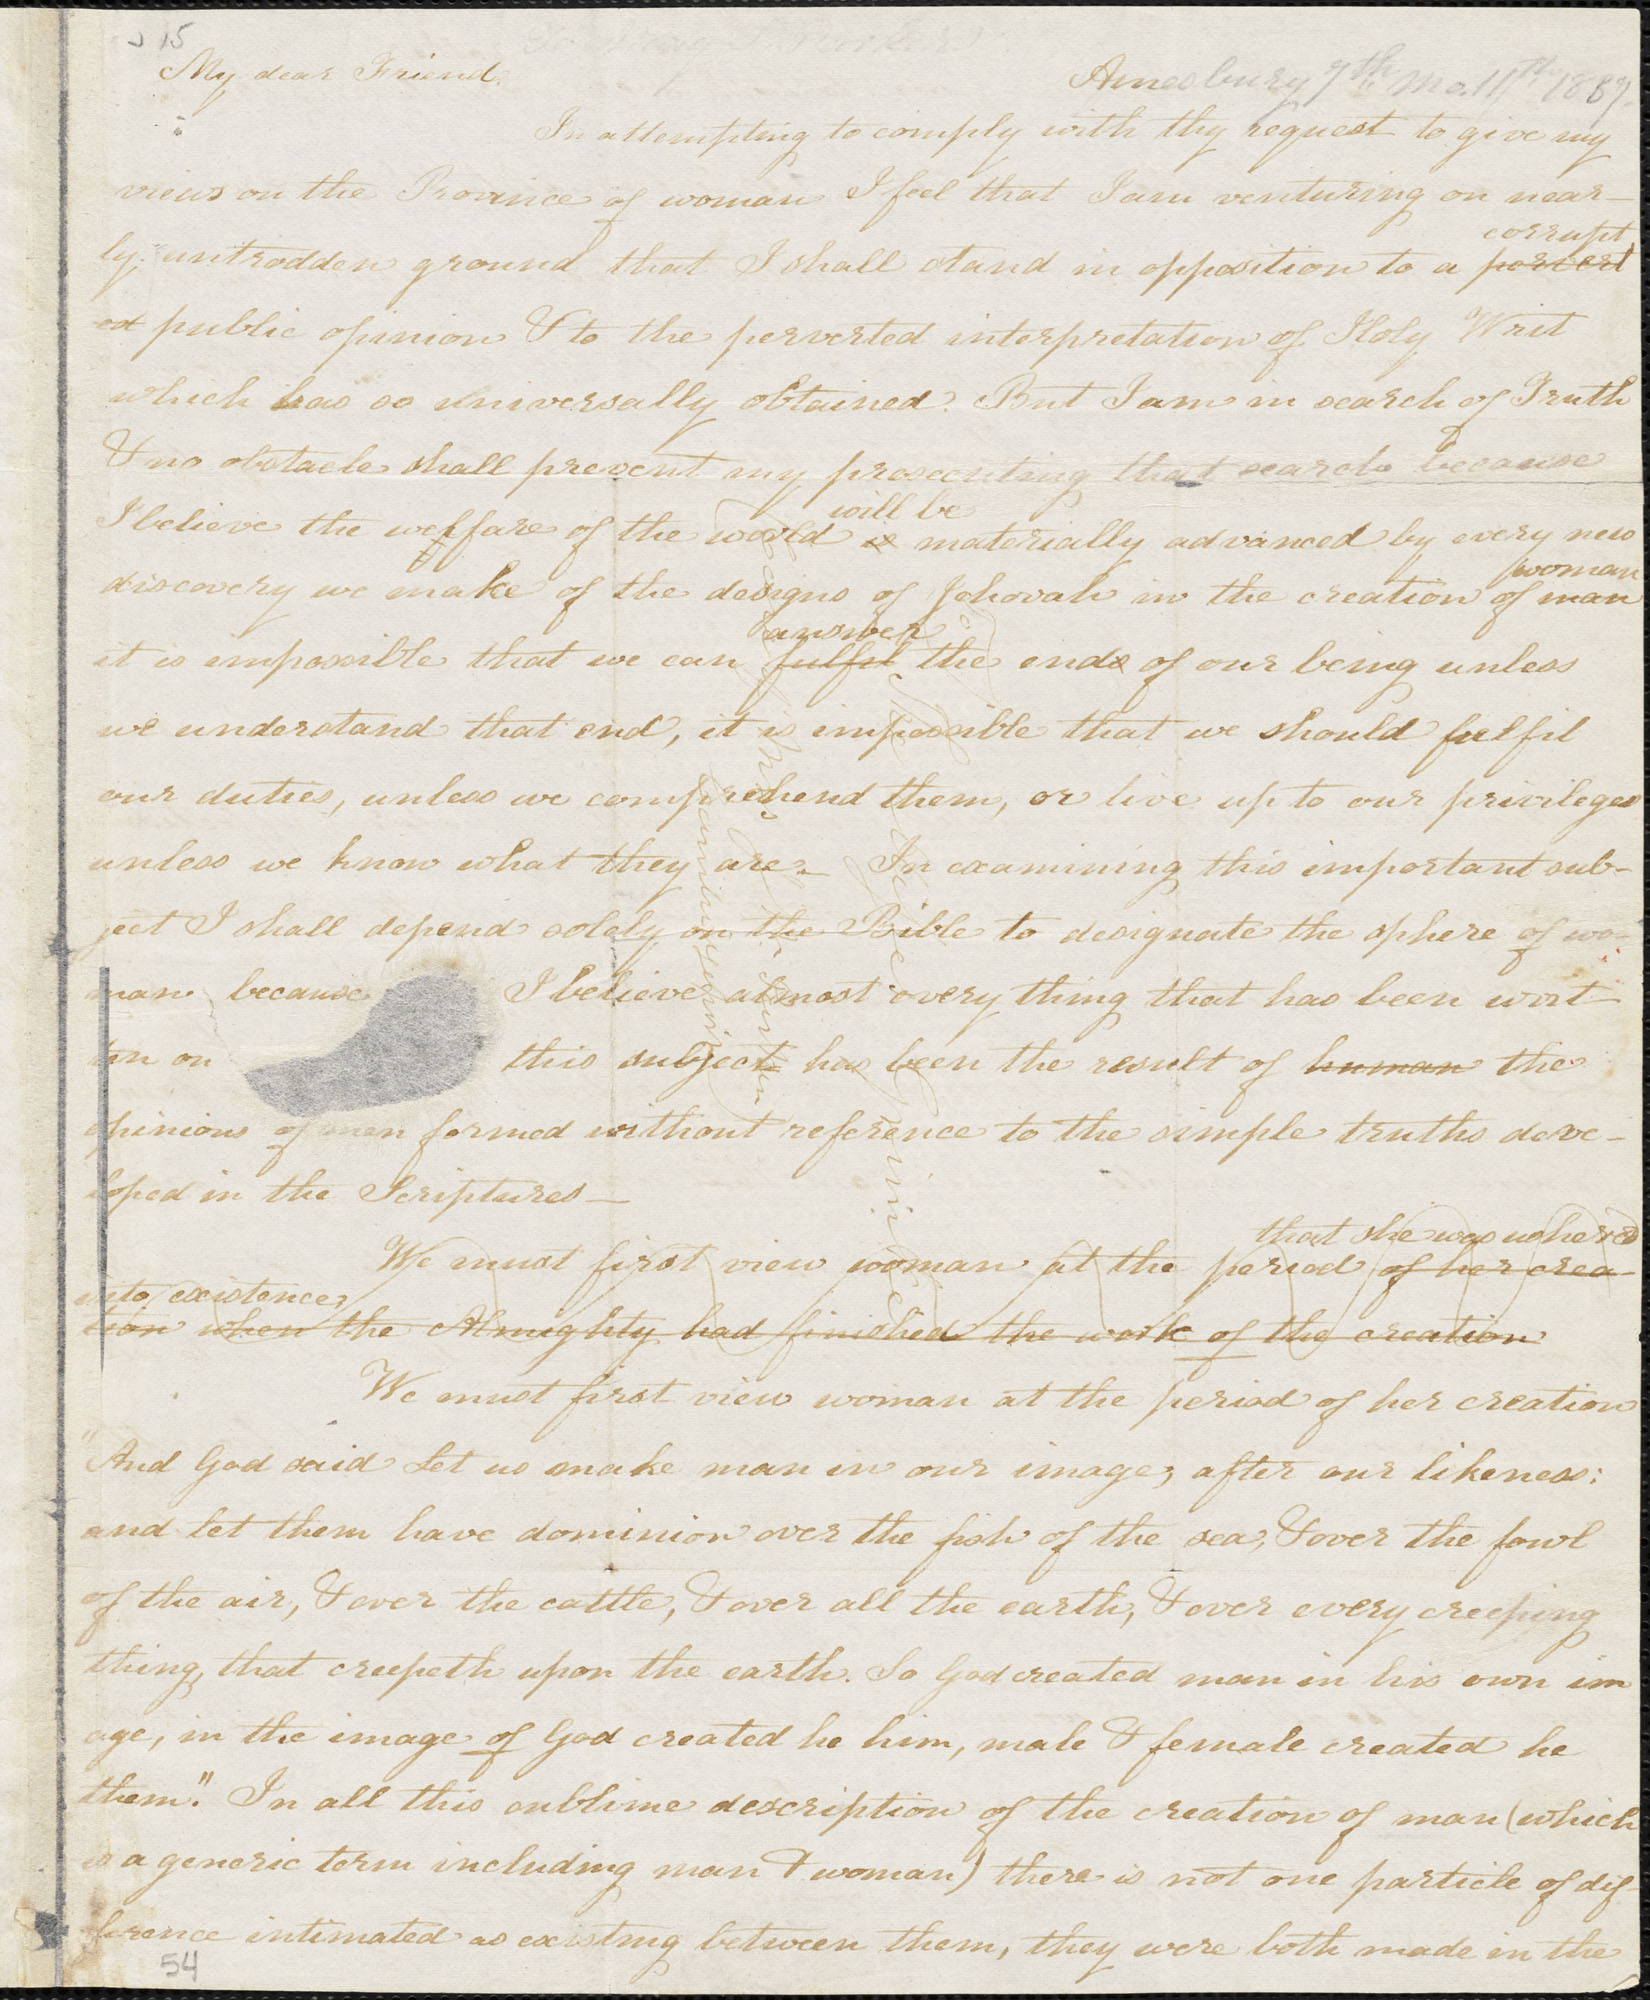 15
My dear Friend.
Amesbury 7th Mo. 11th 1837.
In attempting to comply with thy request to give my
views on the Province of woman I feel that I am venturing on near-
ly untrodden ground that I shall stand in opposition to a pervert
corrupt
ed public opinion & to the perverted interpretation of Holy Writ
which has so universally obtained. But I am in search of Truth
& no obstacle shall prevent my prosecuting that search because
I believe the welfare of the world is materially advanced by every new
will be
discovery we make of the designs of Jehovah in the creation of man
woman
it is impossible that we can fulfil the ends of our being unless
answer
we understand that end, it is impossible that we should fulfil
our duties, unless we comprehend them, or live up to our privileges
unless we know what they are. In examining this important sub-
ject I shall depend solely on the Bible to designate the sphere of wo-
man because I believe almost every thing that has been writ-
ten on this subject has been the result of human the
opinions of men formed without reference to the simple truths deve-
loped in the Scriptures—
We must first view woman at the period of her crea-
that she was ushered
into existence
tion when the Almighty had finished the work of the creation
We must first view woman at the period of her creation
"And God said Let us make man in our image, after our likeness:
and let them have dominion over the fish of the sea, & over the fowl
of the air, & over the cattle, & over all the earth, & over every creeping
thing, that creepeth upon the earth. So God created man in his own im
age, in the image of God created he him, male & female created he
them." In all this sublime description of the creation of man (which
is a generic term including man & woman) there is not one particle of dif-
ference intimated as existing between them, they were both made in the
54